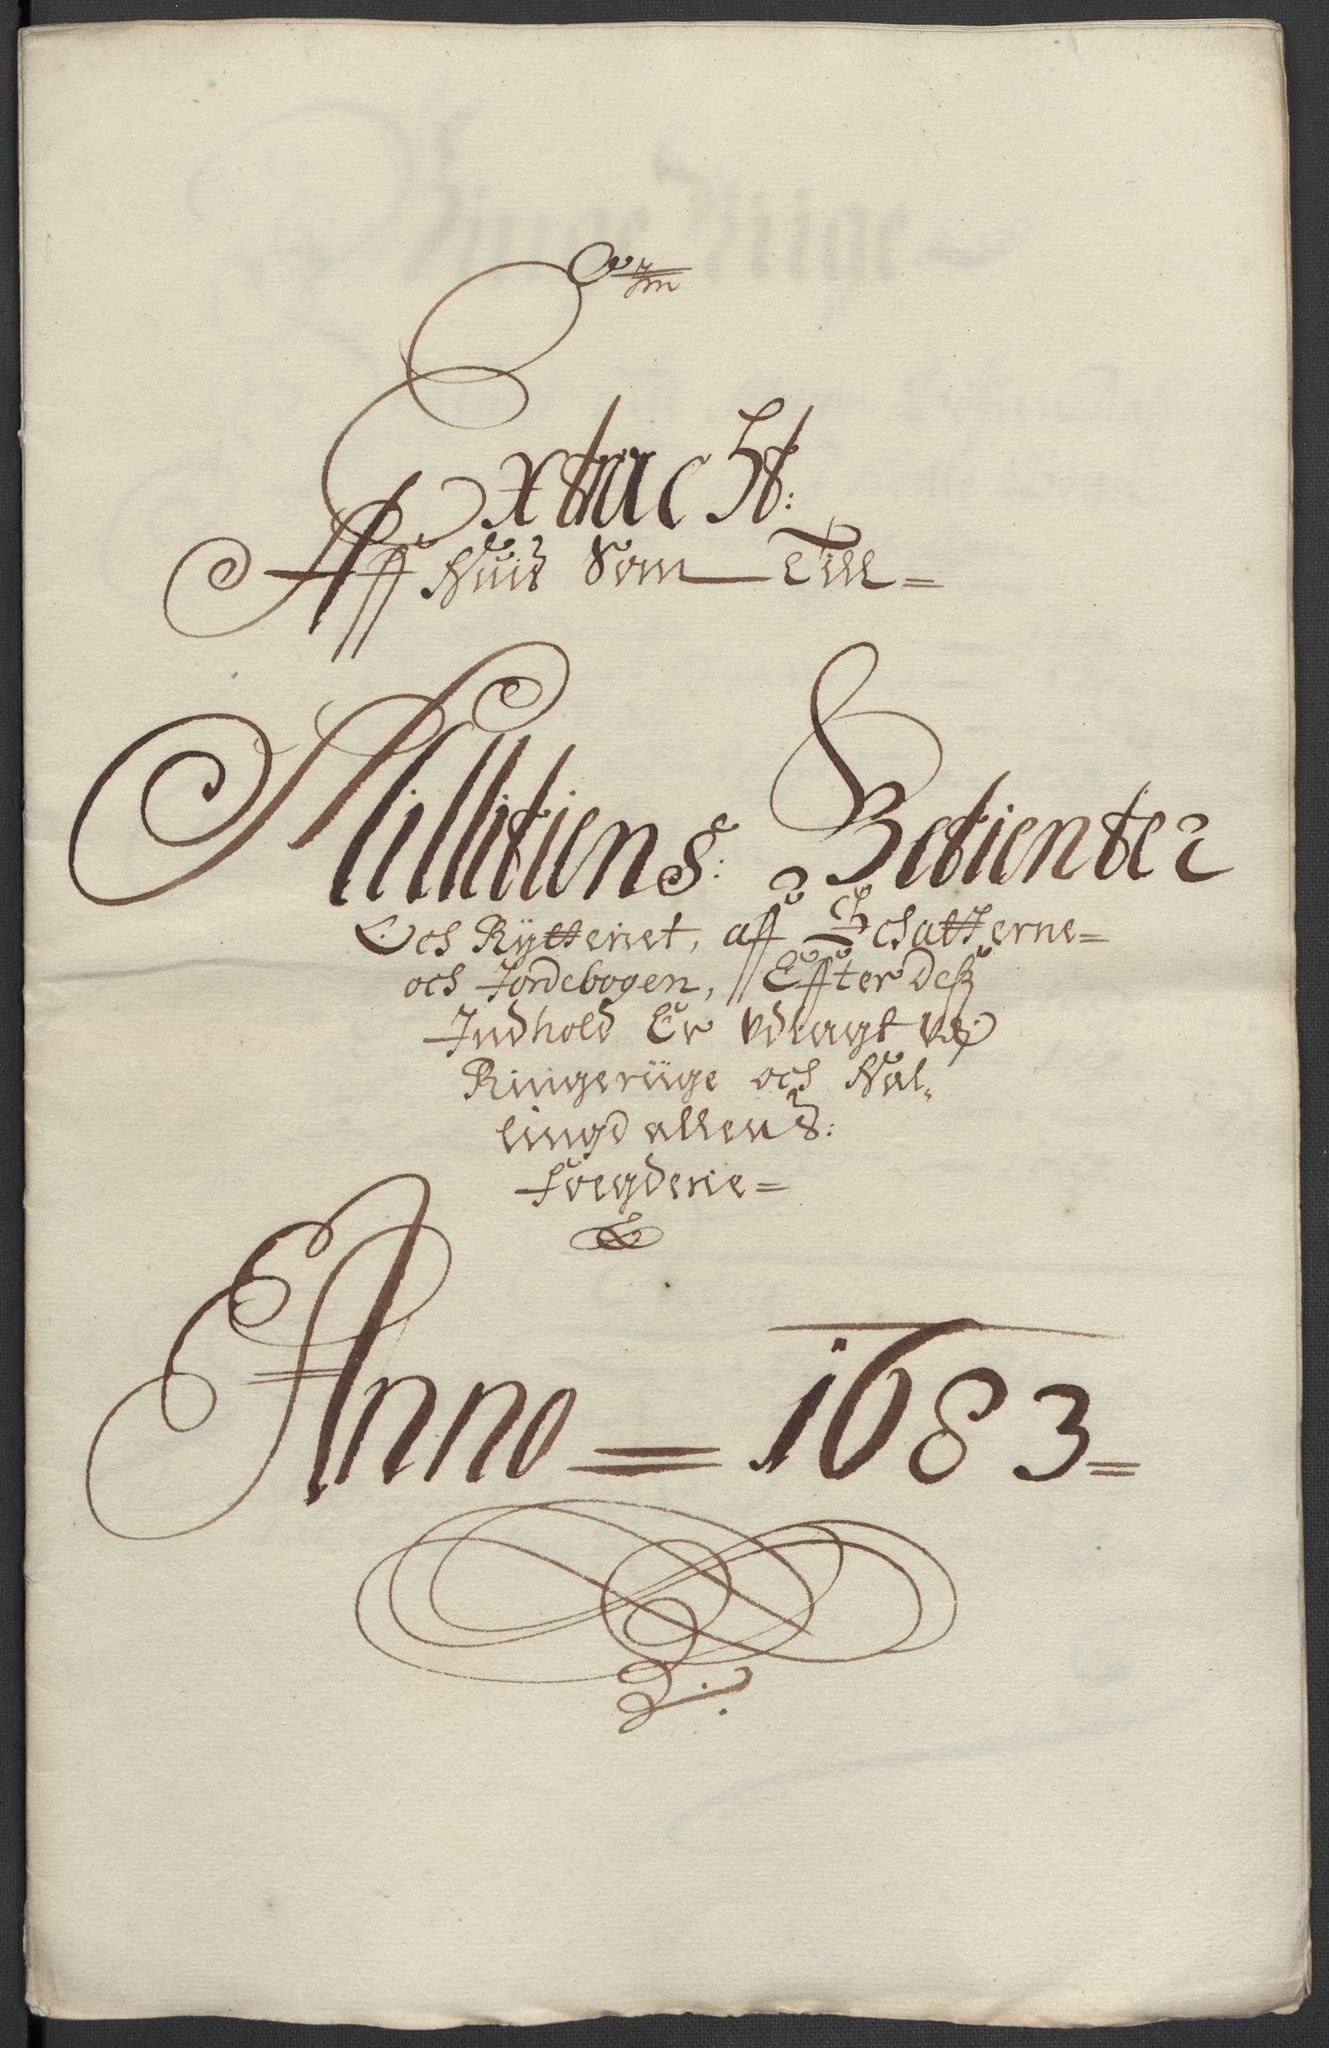 Extracht:
Aff Huis Som Till=
Millitiens: Betienter
Och Rytteriet, aff Schatterne=
och Jordebogen, Effter deß
Indhold Er Udlagt udj
Ringeriige och Hal„
lingdallens:
Foegderie=
Anno = 1683=